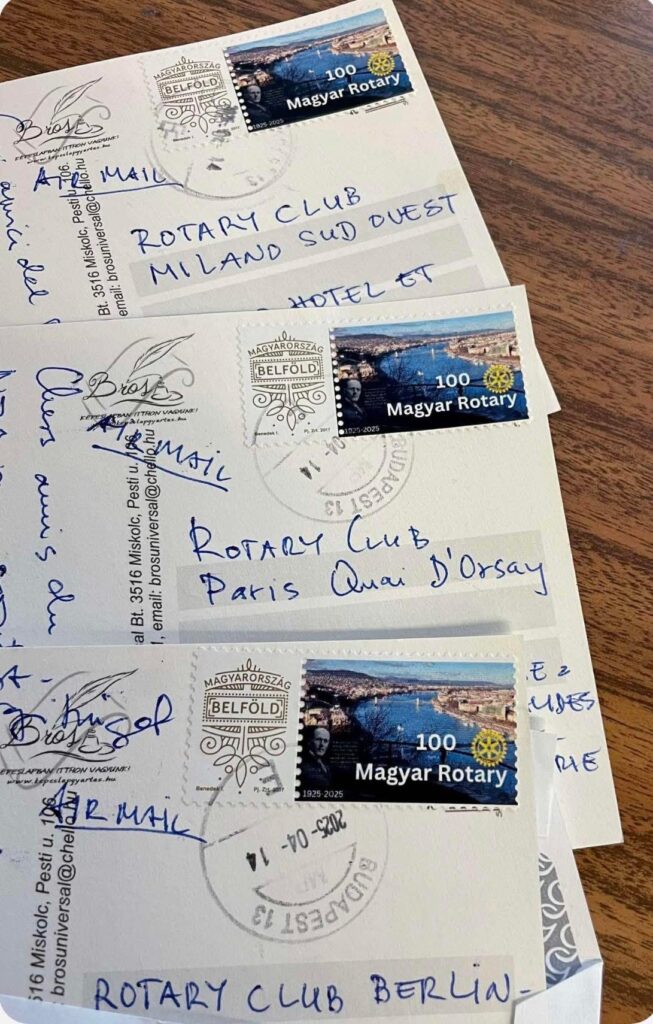 MAGYARORSZÁG
BELFÖLD
100
Magyar Rotary
1925-2025
Bros
KÉPESLAPBAN ITTHON VAGYUNK!
www.kepeslapgyartas.hu
AIR MAIL
Bt. 3516 Miskolc, Pesti u. 106.
email: brosuniversal@chello.hu
amici del
ROTARY CLUB
MILANO SUD OUEST
HOTEL ET
MAGYARORSZÁG
BELFÖLD
Benedek I.
Pj. Zrt. 2017
100
Magyar Rotary
1925-2025
Bros
KÉPESLAPBAN ITTHON VAGYUNK!
AIR MAIL
al Bt. 3516 Miskolc, Pesti u. 106.
1, email: brosuniversal@chello.hu
Chers amis du
04-14
BUDAPEST 13
ROTARY CLUB
Paris Quai D'Orsay
MAGYARORSZÁG
BELFÖLD
Benedek I.
Pj. Zrt. 2017
100
Magyar Rotary
1925-2025
Bros
KÉPESLAPBAN ITTHON VAGYUNK!
www.kepeslapgyartas.hu
AIR MAIL
3516 Miskolc, Pesti u. 106.
brosuniversal@chello.hu
2025-04-14
BUDAPEST 13
ROTARY CLUB BERLIN-